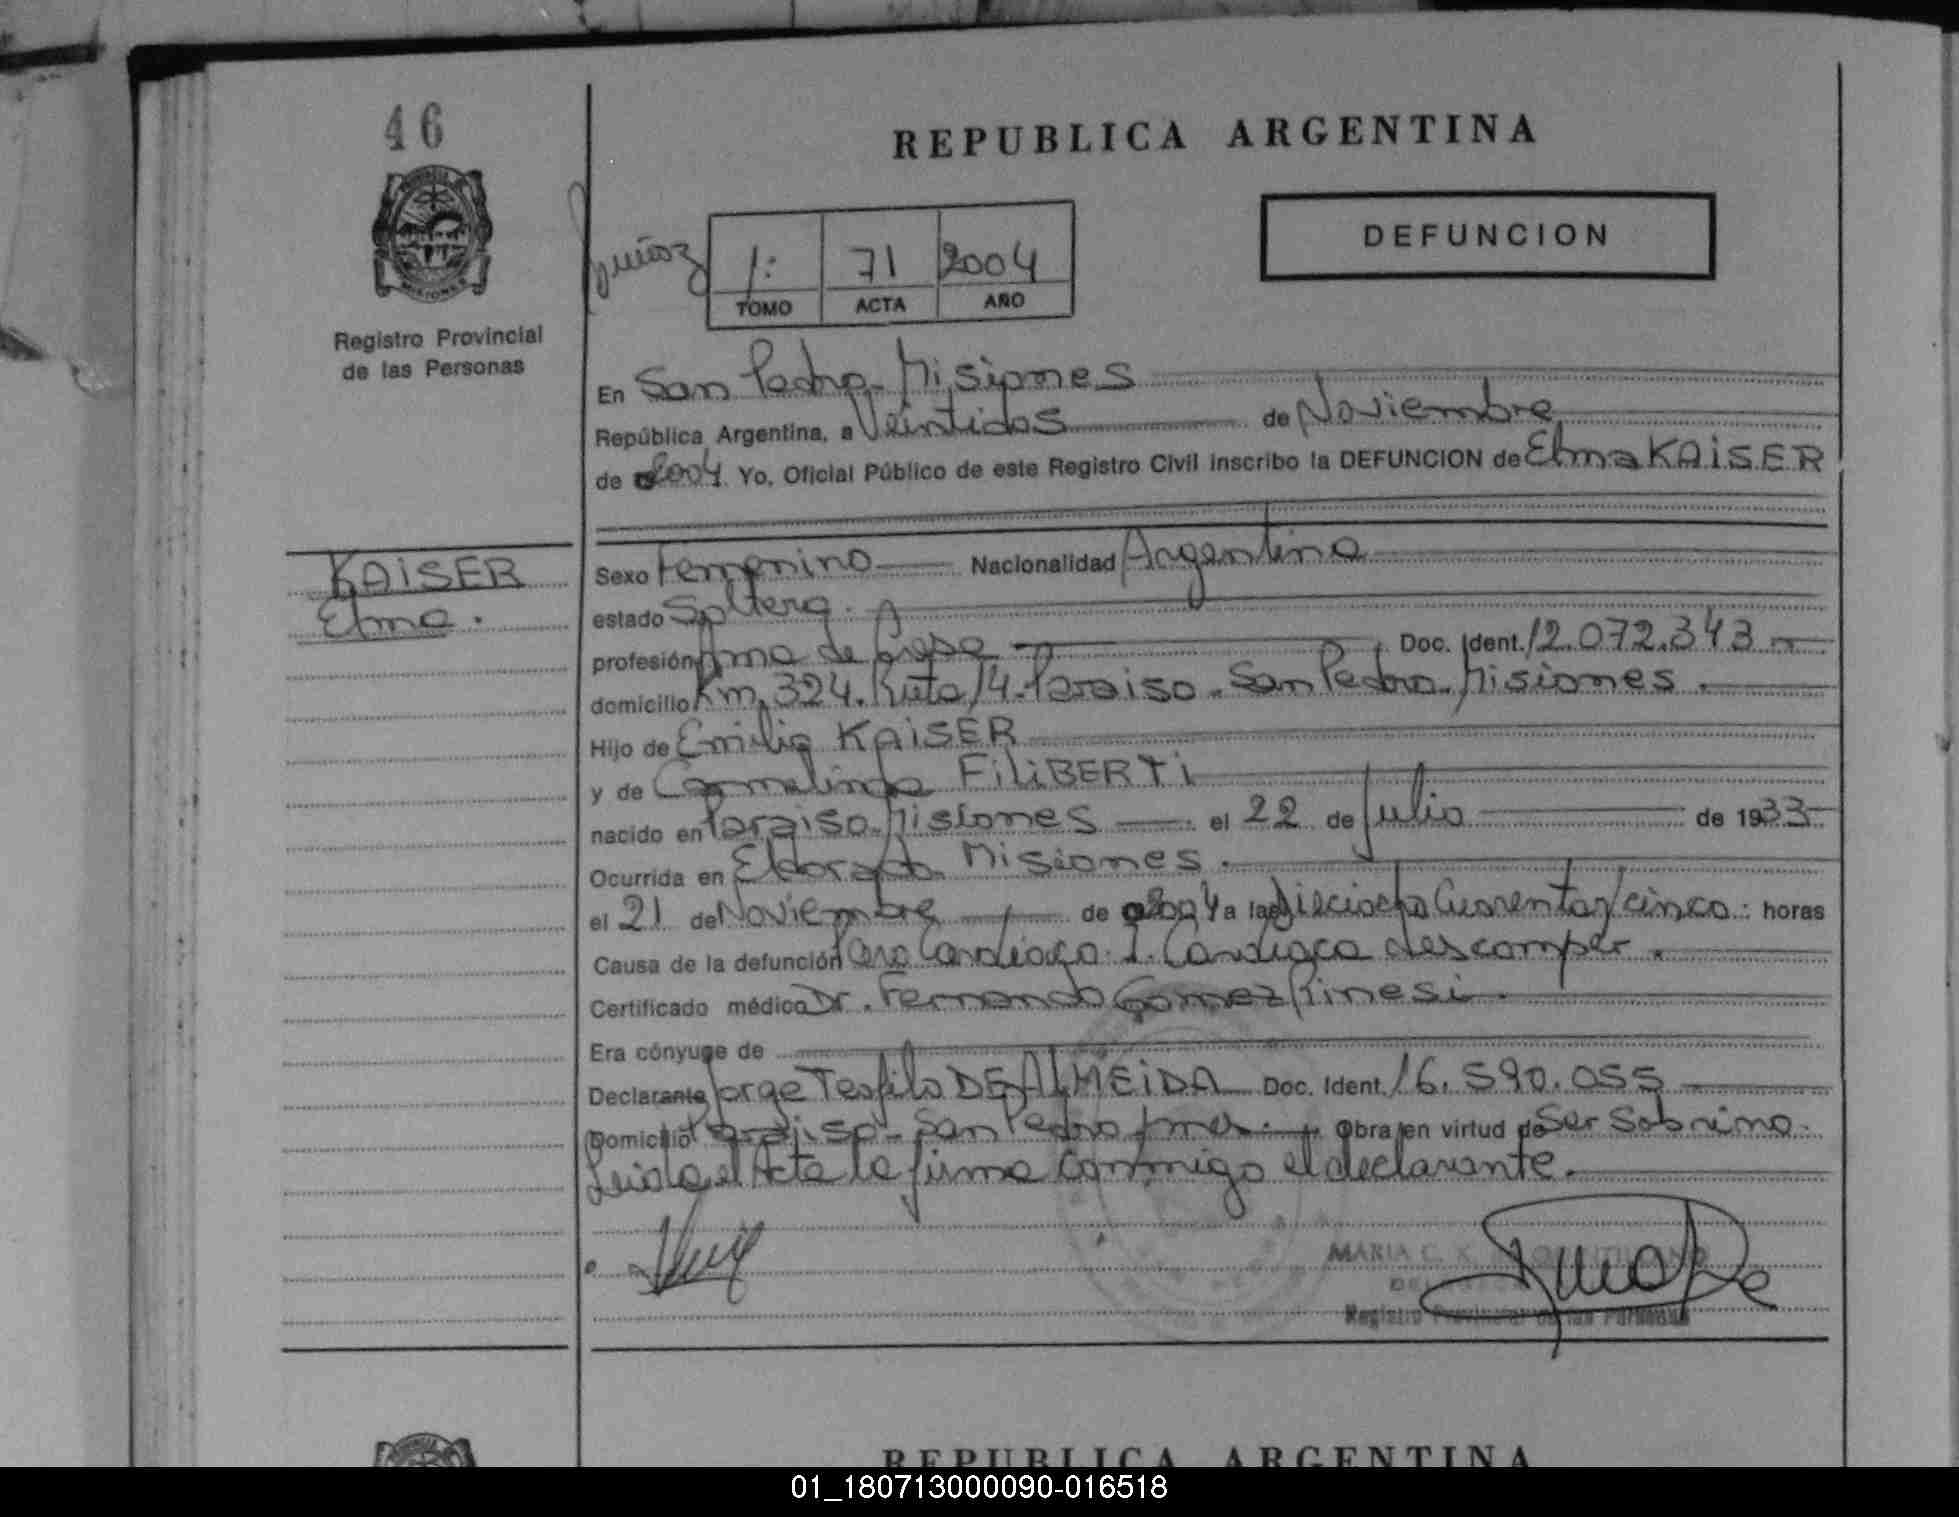 46
REPUBLICA ARGENTINA
DEFUNCION
1: 71 2004
TOMO ACTA AÑO
Registro Provincial
de las Personas
En San Pedro - Misiones
República Argentina, a Veintidos de Noviembre
de 2004 Yo, Oficial Público de este Registro Civil inscribo la DEFUNCION de Elma KAiSER
KAiSER
Elma.
Sexo Femenino Nacionalidad Argentina
estado Soltera.
profesión Ama de Casa Doc. Ident. 12.072.343
domicilio Km. 324. Ruta 14. Paraiso - San Pedro - Misiones.
Hijo de Emilio KAiSER
y de Carmelinda FiLiBERTi
nacido en Paraiso - Misiones el 22 de Julio de 1933
Ocurrida en Eldorado Misiones.
el 21 de Noviembre de 2004 a las Dieciocho Cuarenta y cinco horas
Causa de la defunción Paro Cardiaco. I. Cardiaca descomper.
Certificado médico Dr. Fernando Gomez Rinesi.
Era cónyuge de
Declarante Jorge Teofilo DE ALMEiDA Doc. Ident. 16.590.055
Domicilio Paraiso - San Pedro Obra en virtud de Ser Sobrino.
Leida el Acta la firma conmigo el declarante.
MARIA C. K.
Registro Provincial de las Personas
REPUBLICA ARGENTINA
01_180713000090-016518